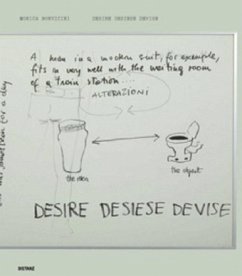 MONICA BONVICINI DESIRE DESIESE DEVISE
A man in a modern suit, for example,
fits in very well with the waiting room
of a train station....
ALTERAZIONI
for a day
the idea
the object
DESIRE DESIESE DEVISE
DISTANZ